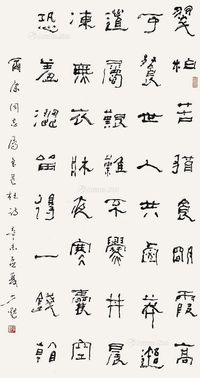 翠柏苦猶食明霞高
可餐世人共鹵莽吾
道屬艱難不爨井晨
凍無衣牀夜寒囊空
恐羞澀留得一錢看
同志屬書老杜詩